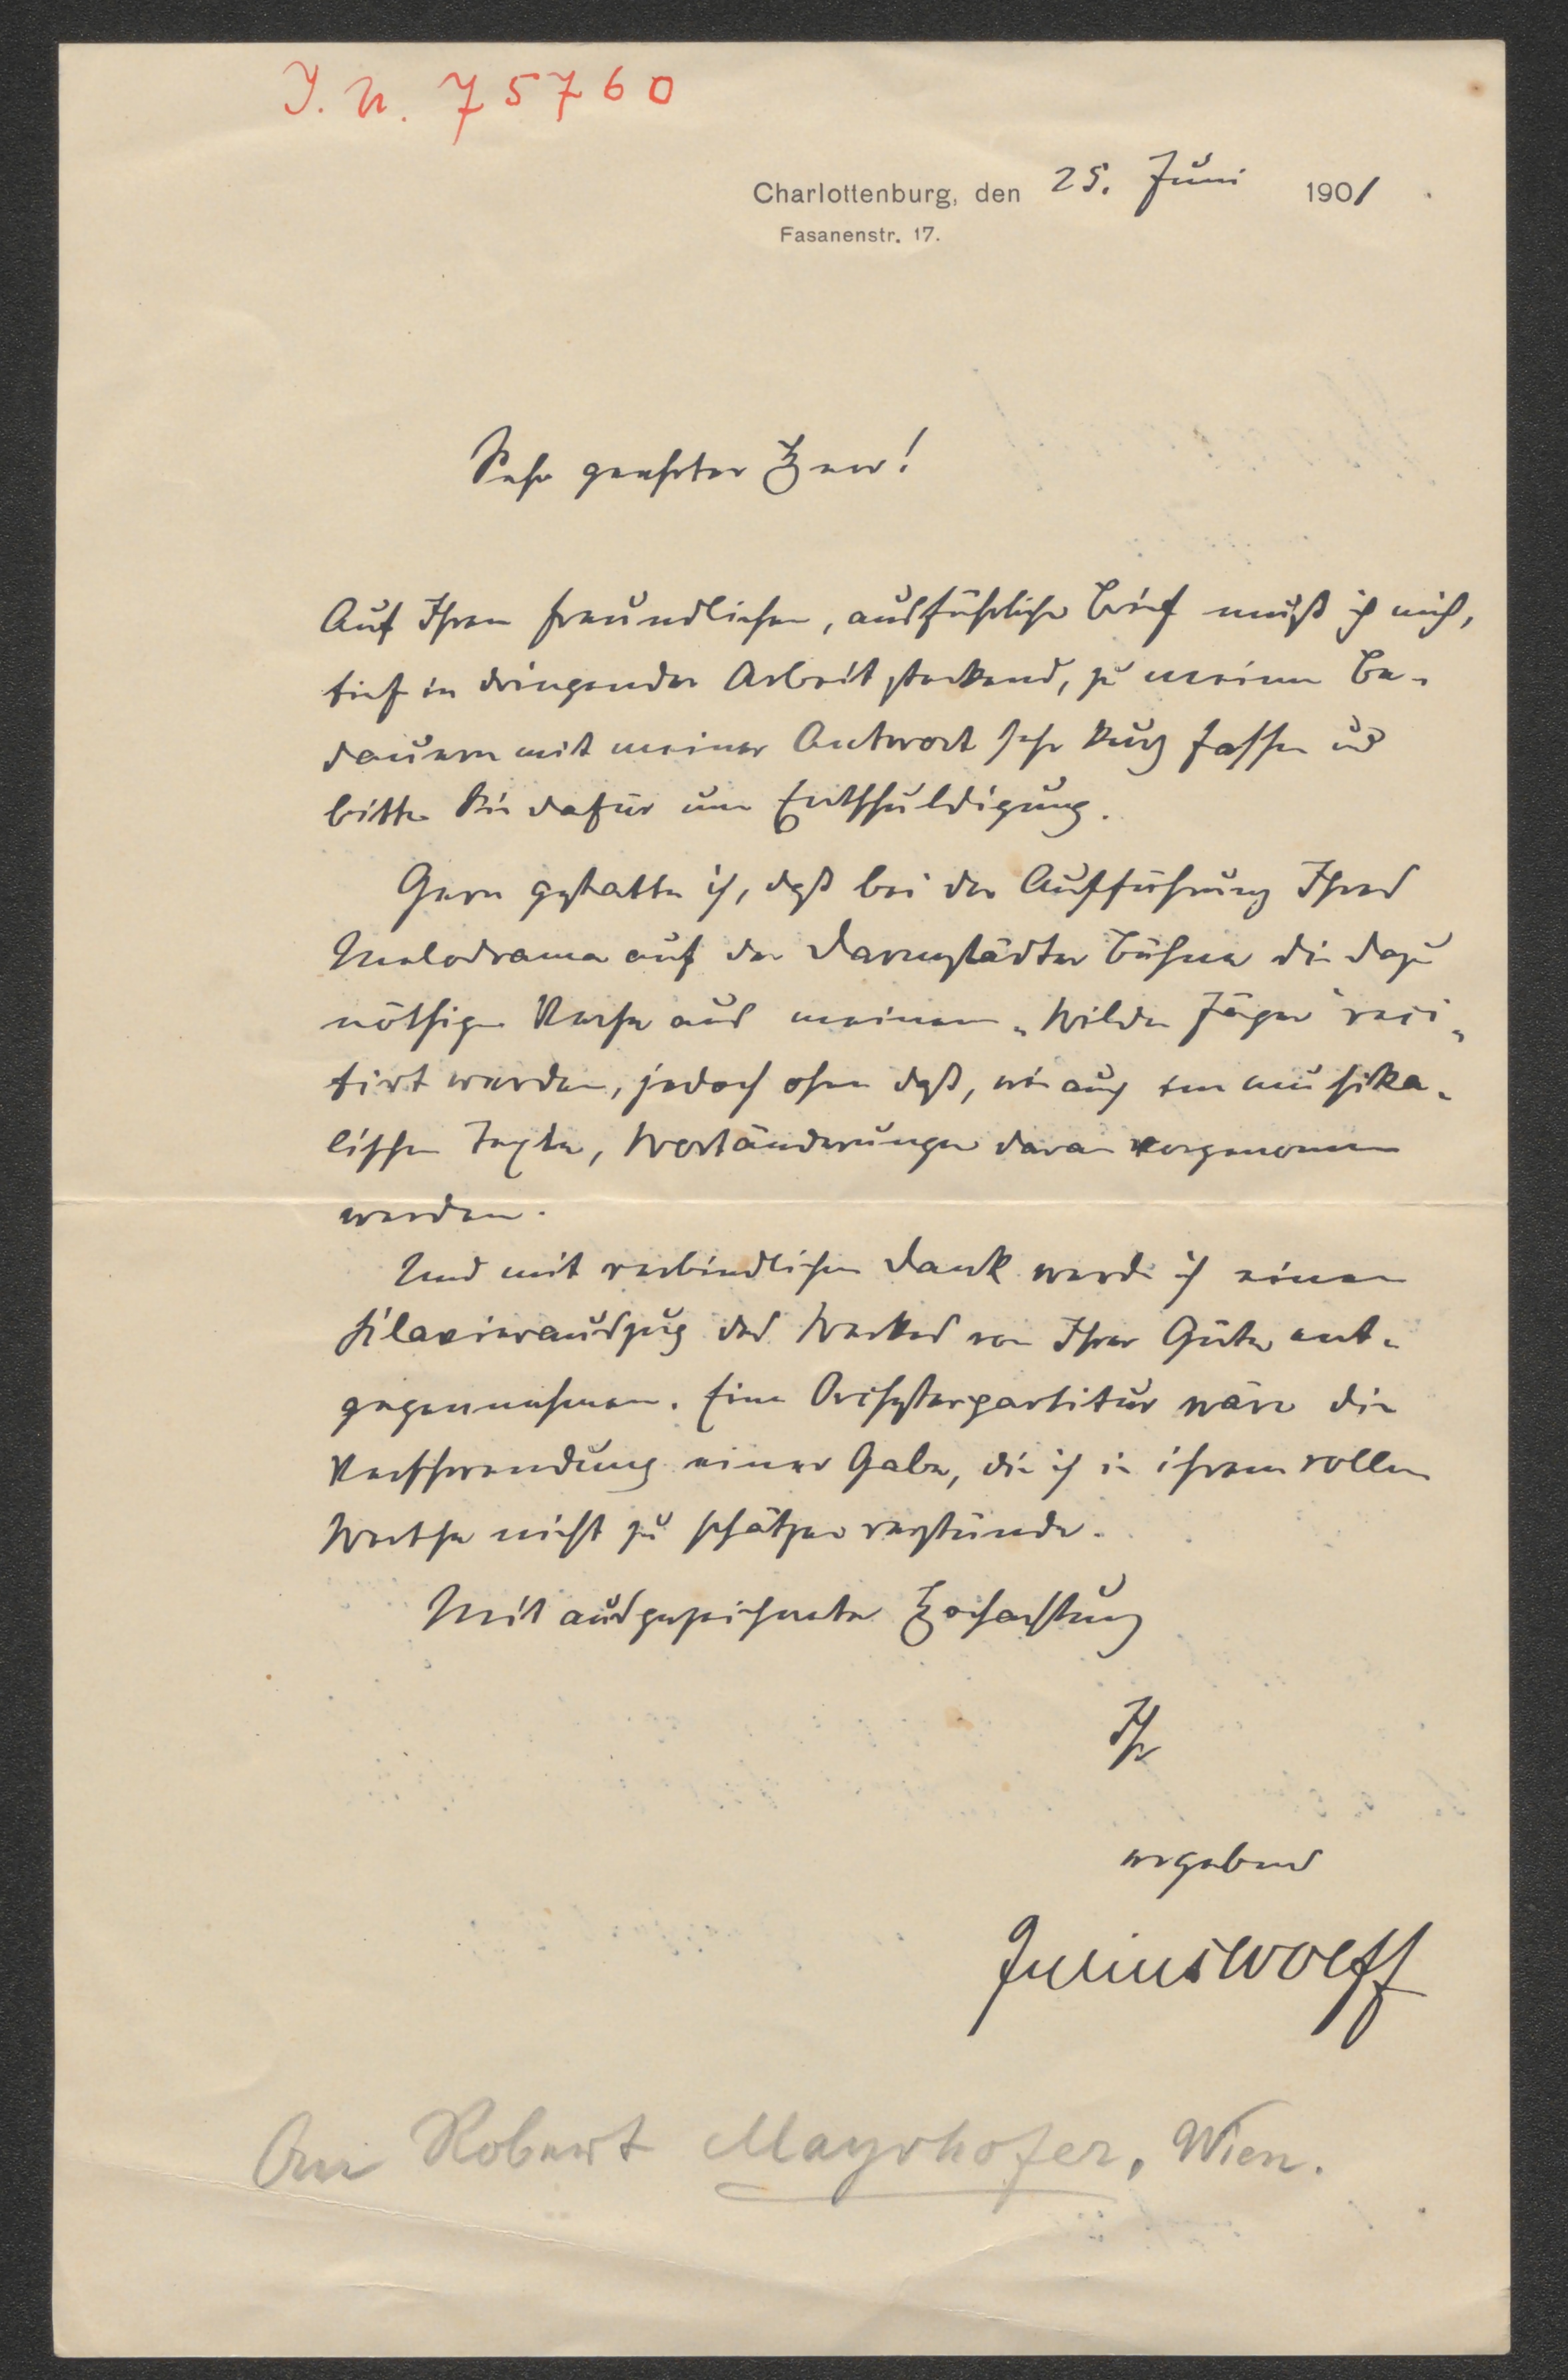 J. N. 75760
Charlottenburg, den 25. Juni 1901
Fasanenstr. 17.
Sehr geehrter Herr!
Auf Ihren freundlichen, ausführlichen Brief muß ich mich,
tief in dringender Arbeit steckend, zu meinem Be-
dauern mit meiner Antwort sehr kurz fassen und
bitte Sie dafür um Entschuldigung.
Gern gestatte ich, daß bei der Aufführung Ihres
Melodrama auf der Darmstädter Bühne die dazu
nöthigen Verse aus meinem „Wilden Jäger" reci-
tirt werden, jedoch ohne daß, wie auch im musika-
lischen Texte, Wortänderungen daran vorgenommen
werden.
Und mit verbindlichem Dank werde ich einen
Klavierauszug des Werkes von Ihrer Güte ent-
gegennehmen. Eine Orchesterpartitur wäre die
Verschwendung einer Gabe, die ich in ihrem vollen
Werthe nicht zu schätzen verstünde.
Mit ausgezeichneter Hochachtung
Ihr
ergebener
Julius Wolff
An Robert Mayrhofer, Wien.